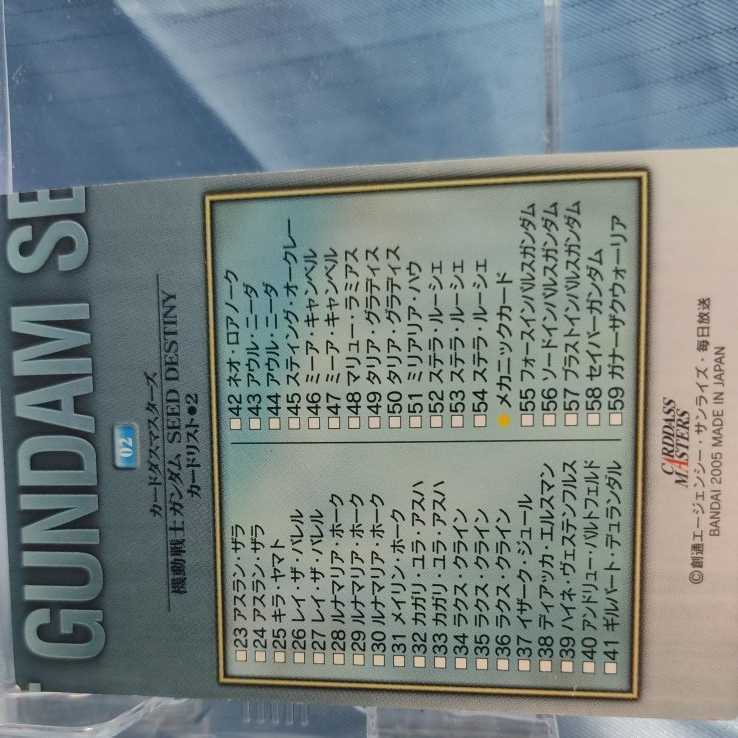 GUNDAM SE
02
カードダスマスターズ
機動戦士ガンダム SEED DESTINY
カードリスト●2
□23 アスラン・ザラ
□24 アスラン・ザラ
□25 キラ・ヤマト
□26 レイ・ザ・バレル
□27 レイ・ザ・バレル
□28 ルナマリア・ホーク
□29 ルナマリア・ホーク
□30 ルナマリア・ホーク
□31 メイリン・ホーク
□32 カガリ・ユラ・アスハ
□33 カガリ・ユラ・アスハ
□34 ラクス・クライン
□35 ラクス・クライン
□36 ラクス・クライン
□37 イザーク・ジュール
□38 ディアッカ・エルスマン
□39 ハイネ・ヴェステンフルス
□40 アンドリュー・バルトフェルド
□41 ギルバート・デュランダル
□42 ネオ・ロアノーク
□43 アウル・ニーダ
□44 アウル・ニーダ
□45 スティング・オークレー
□46 ミーア・キャンベル
□47 ミーア・キャンベル
□48 マリュー・ラミアス
□49 タリア・グラディス
□50 タリア・グラディス
□51 ミリアリア・ハウ
□52 ステラ・ルーシェ
□53 ステラ・ルーシェ
□54 ステラ・ルーシェ
●メカニックカード
□55 フォースインパルスガンダム
□56 ソードインパルスガンダム
□57 ブラストインパルスガンダム
□58 セイバーガンダム
□59 ガナーザクウォーリア
CARDDASS
MASTERS
©創通エージェンシー・サンライズ・毎日放送
BANDAI 2005 MADE IN JAPAN